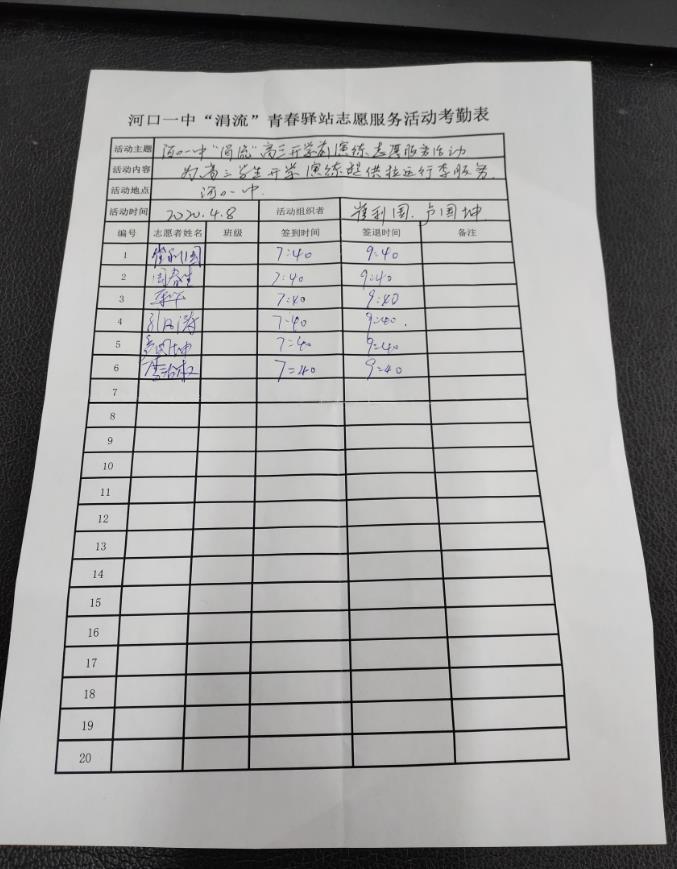 河口一中“涓流”青春驿站志愿服务活动考勤表
活动主题 河口一中“涓流”高三开学前演练志愿服务活动
活动内容 为高三学生开学演练提供拉运行李服务.
活动地点 河口一中.
活动时间 2020.4.8 活动组织者 崔利国.卢国坤
编号 志愿者姓名 班级 签到时间 签退时间 备注
1 崔利国 7:40 9:40
2 7:40 9:40
3 7:40 9:40
4 7:40 9:40.
5 卢国坤 7:40 9:40
6 7:40 9:40
7
8
9
10
11
12
13
14
15
16
17
18
19
20